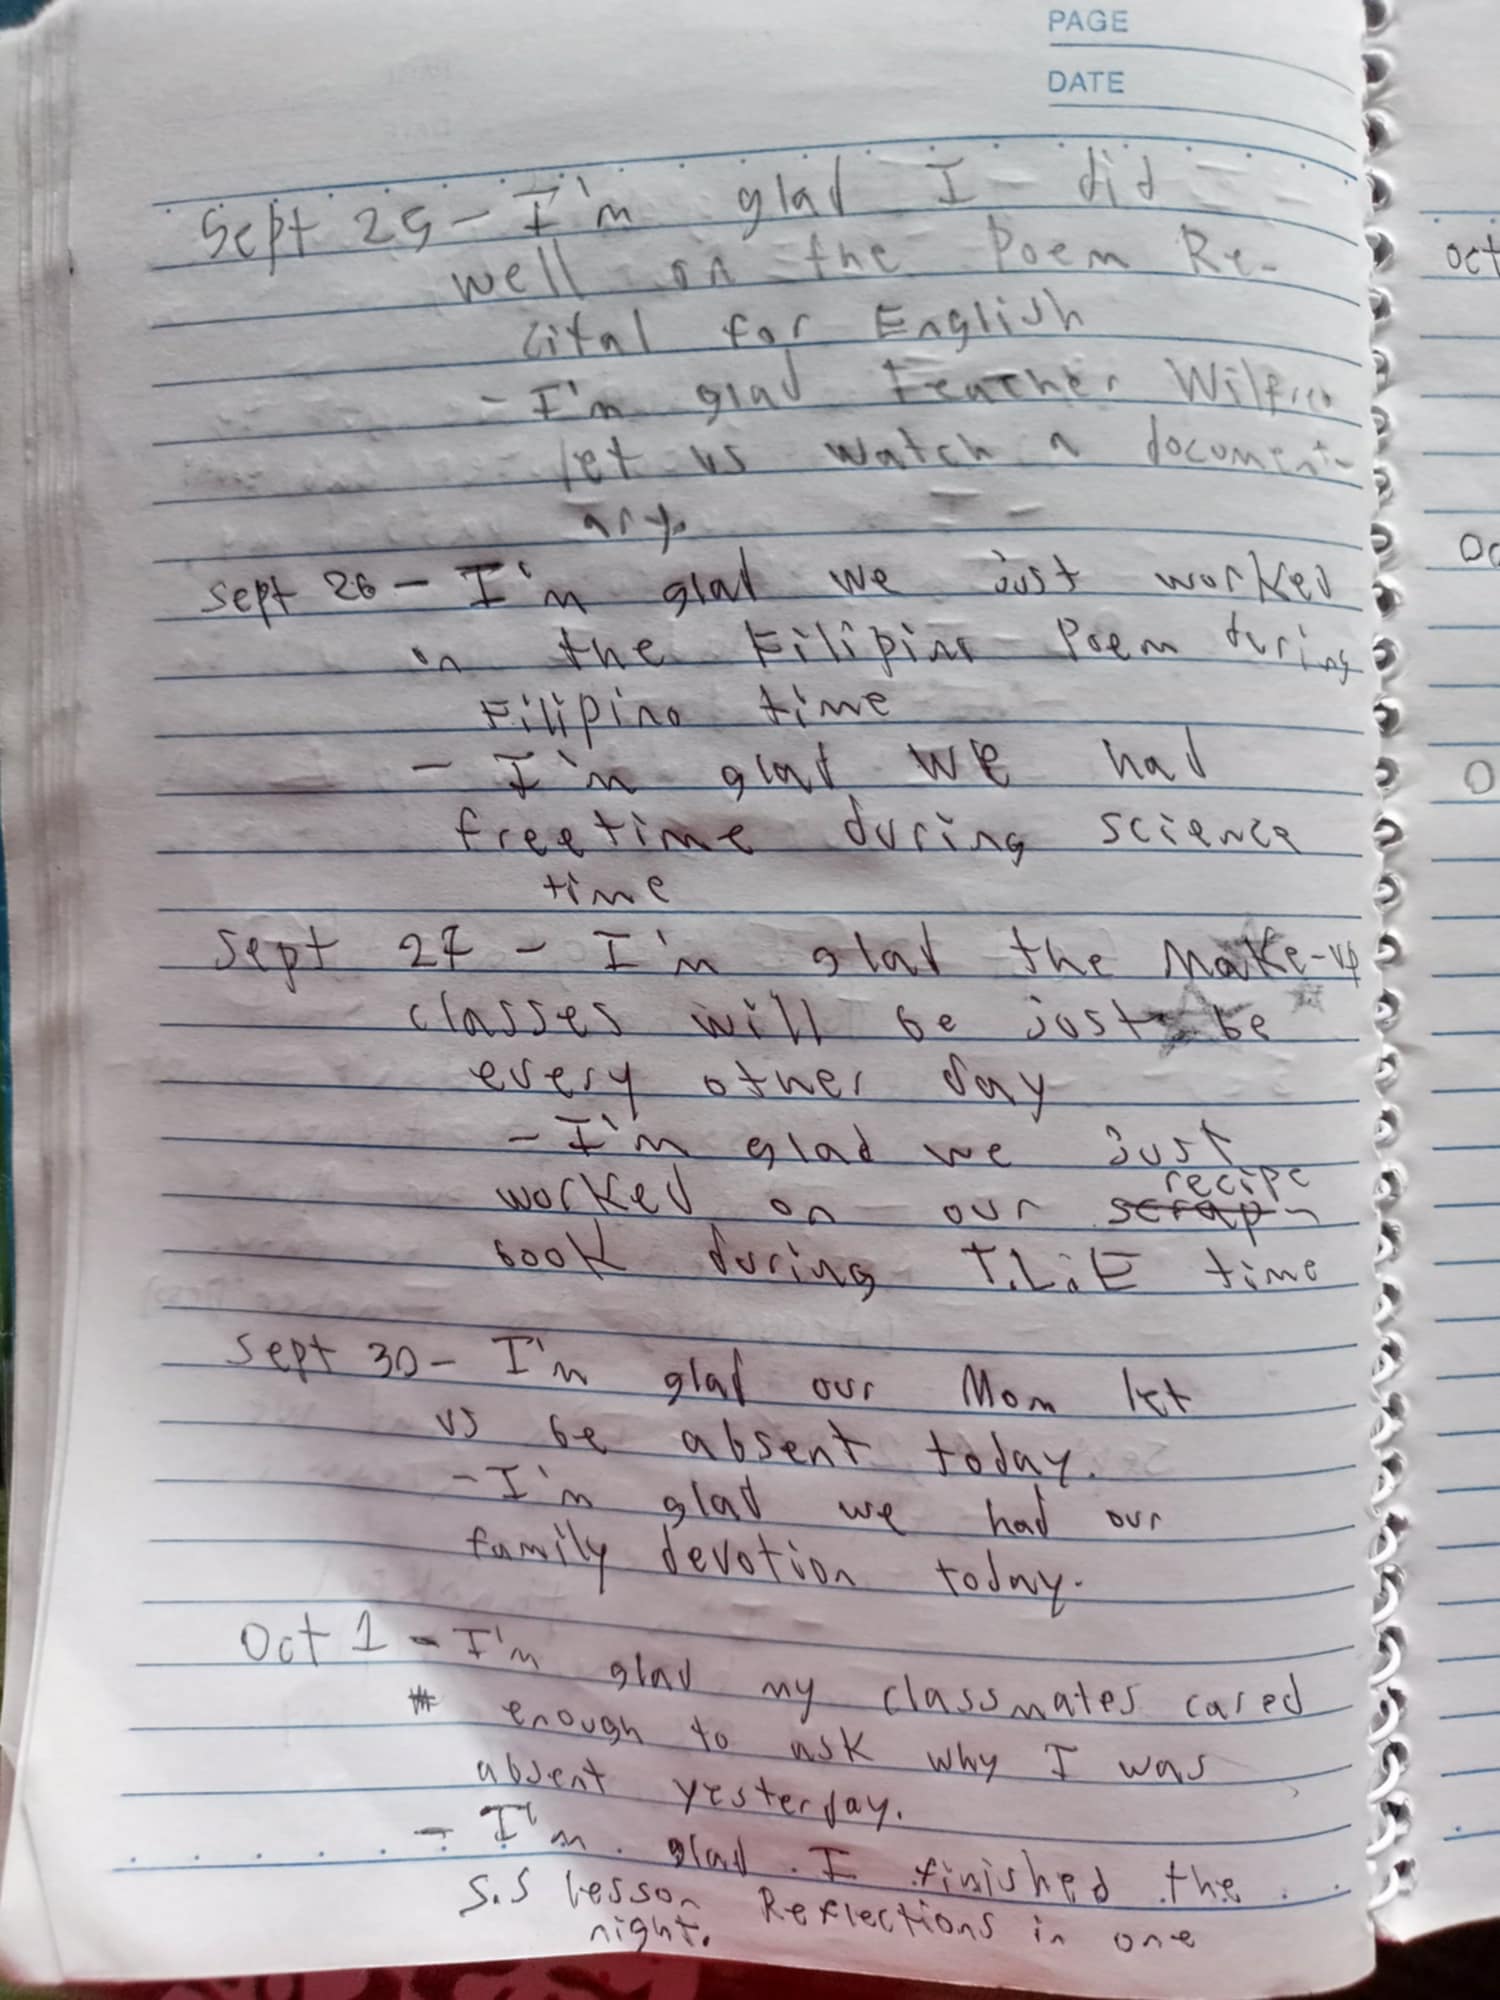 PAGE
DATE
Sept 25 - I'm glad I did
well on the Poem Re-
cital for English
- I'm glad teacher
let us watch a document-
ary.
Sept 26 - I'm glad we just worked
in the Filipino Poem during
Filipino time
- I'm glad we had
freetime during science
time
Sept 27 - I'm glad the Make-up
classes will be just be
every other day
- I'm glad we just
worked on our scrap recipe
book during T.L.E time
Sept 30 - I'm glad our Mom let
us be absent today.
- I'm glad we had our
family devotion today.
Oct 1 - I'm glad my classmates cared
enough to ask why I was
absent yesterday.
- I'm glad I finished the
S.S lesson Reflections in one
night.
oct
Oc
O